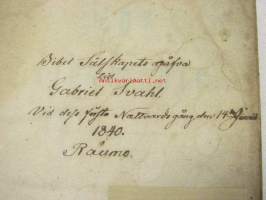 Bibel Sälskapets gåfva
till
Gabriel Svahl.
Vid dess första Nattwards gång den 14de Junii
1840.
Raumo.
www.antikvariaatti.net